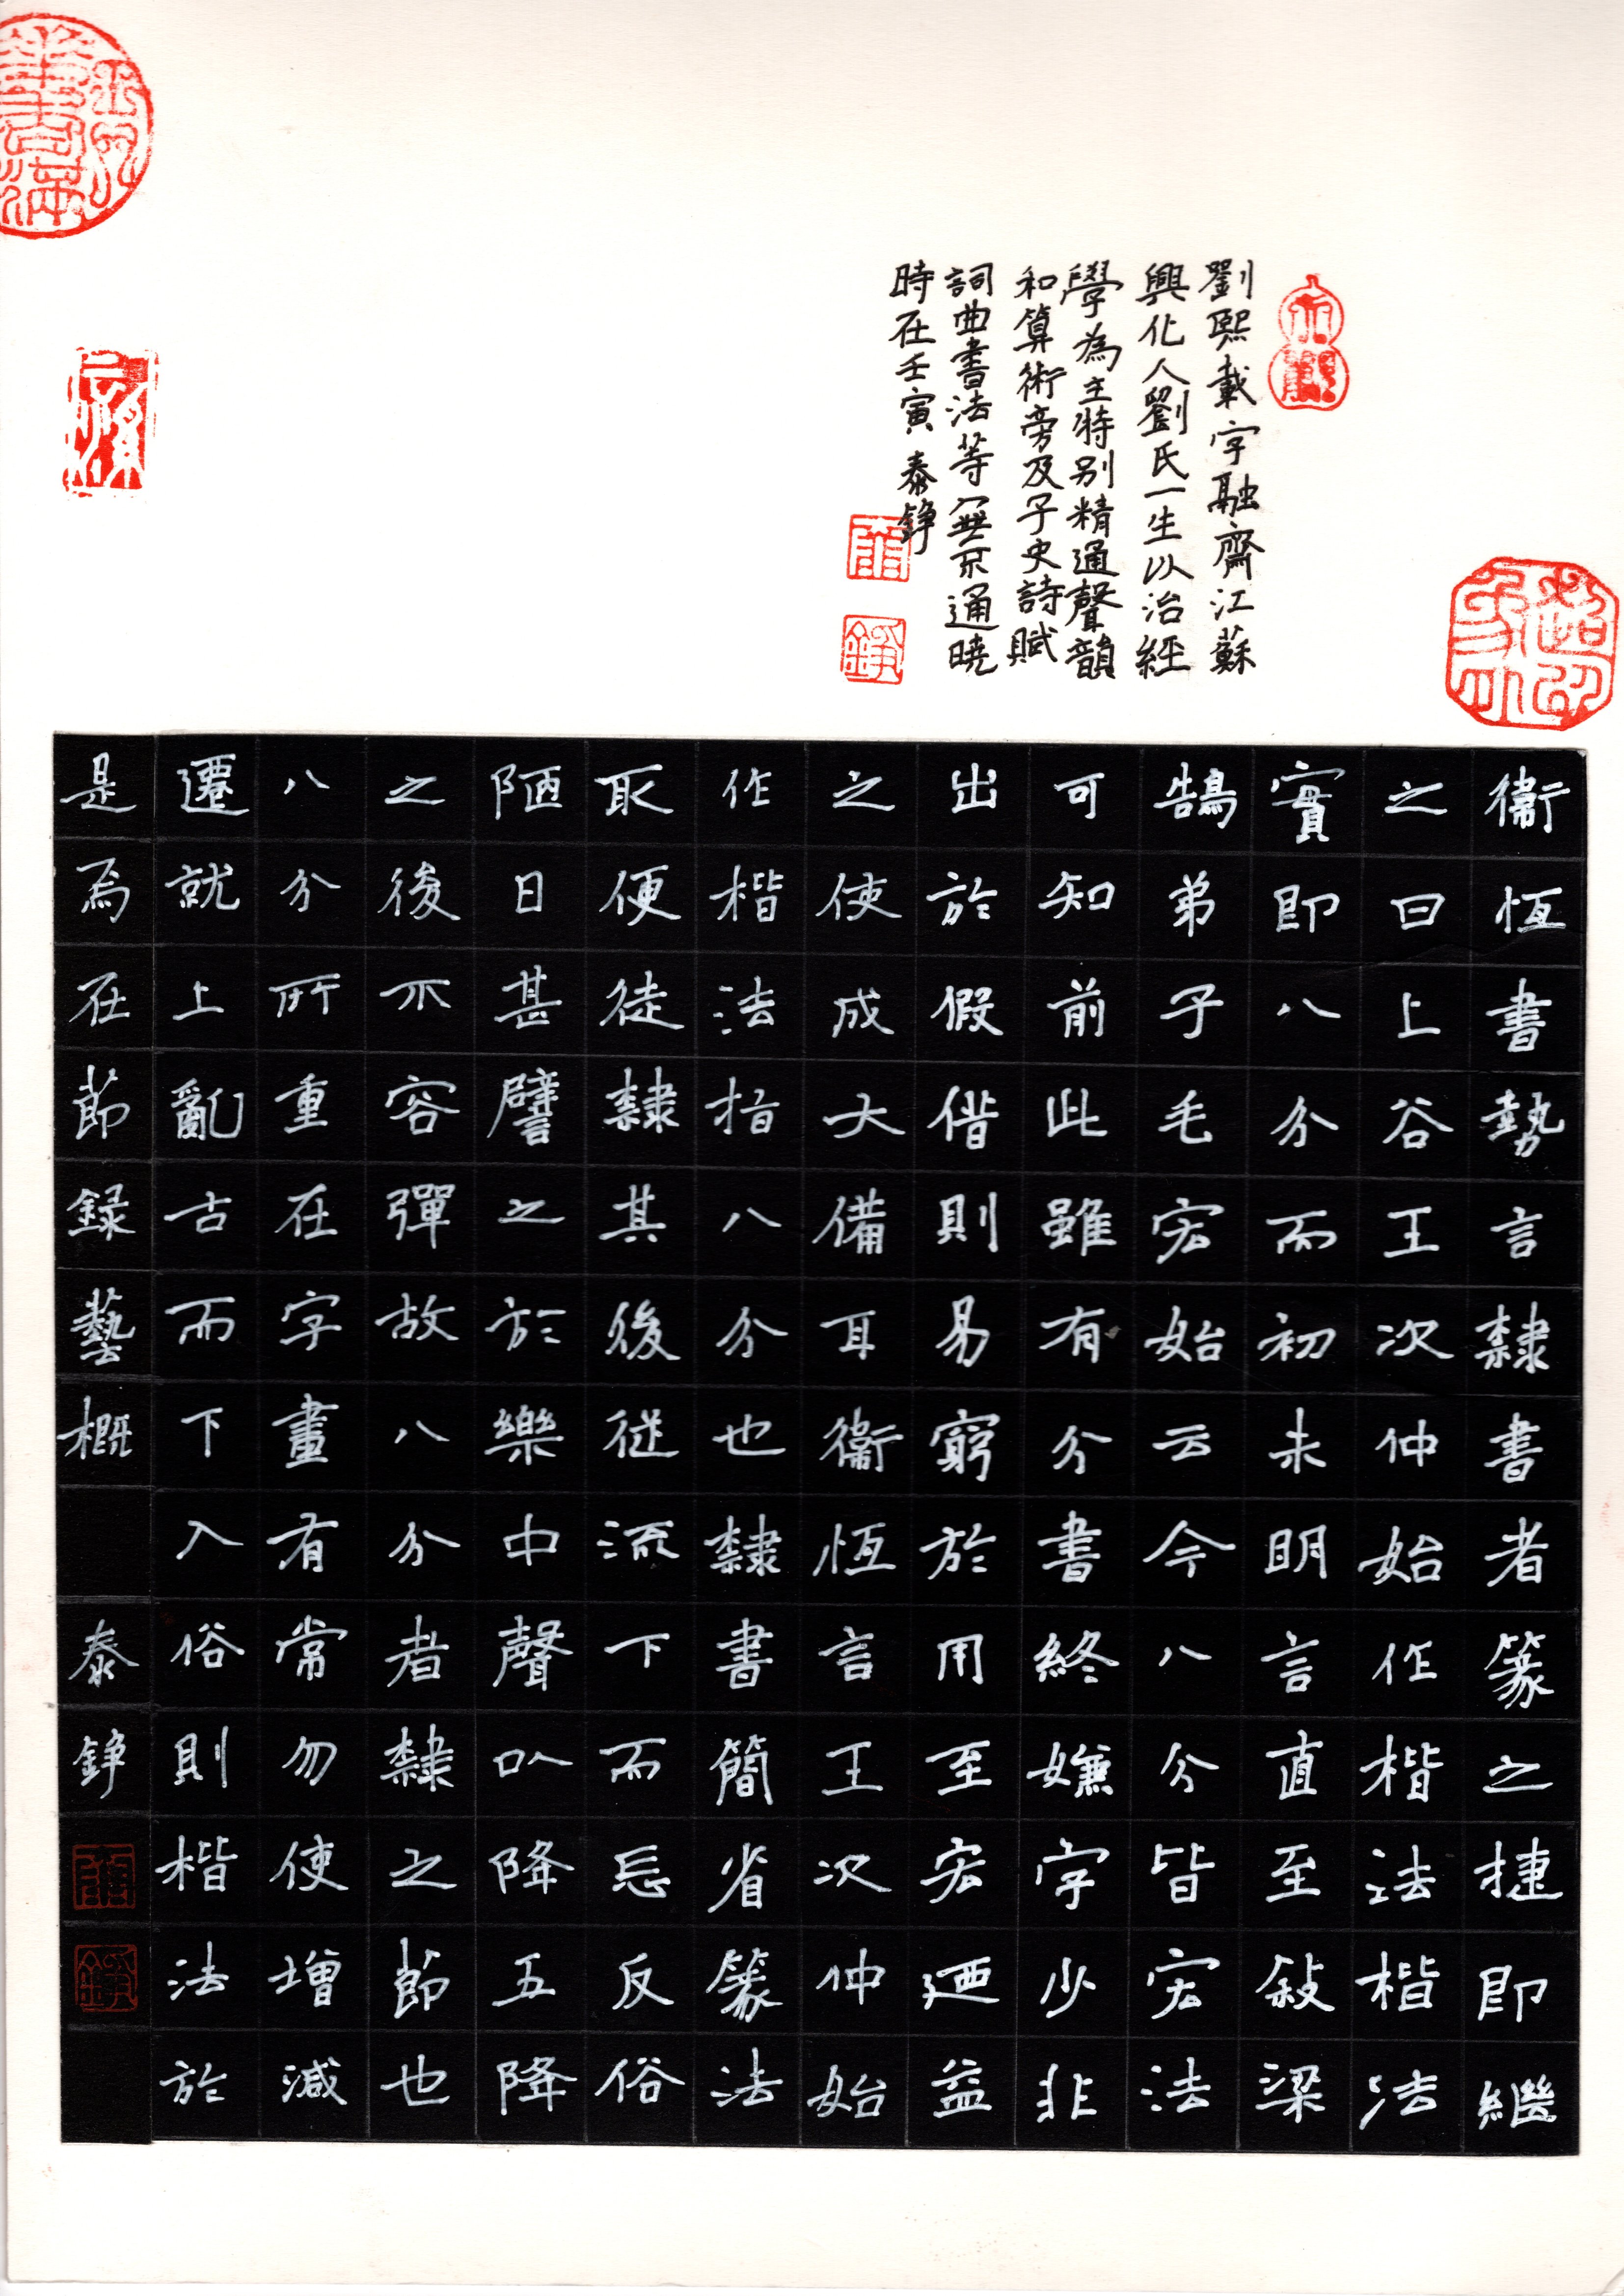 劉熙載字融齋江蘇
興化人劉氏一生以治經
學為主特別精通聲韻
和算術旁及子史詩賦
詞曲書法等無不通曉
時在壬寅 泰錚
衞恆書勢言隸書者篆之捷即繼
之曰上谷王次仲始作楷法楷法
實即八分而初未明言直至敍梁
鵠弟子毛宏始云今八分皆宏法
可知前此雖有分書終嫌字少非
出於假借則易窮於用至宏迺益
之使成大備耳衞恆言王次仲始
作楷法指八分也隸書簡省篆法
取便徒隸其後從流下而忘反俗
陋日甚譬之於樂中聲以降五降
之後不容彈故八分者隸之節也
八分所重在字畫有常勿使增減
遷就上亂古而下入俗則楷法於
是焉在節録藝概 泰錚